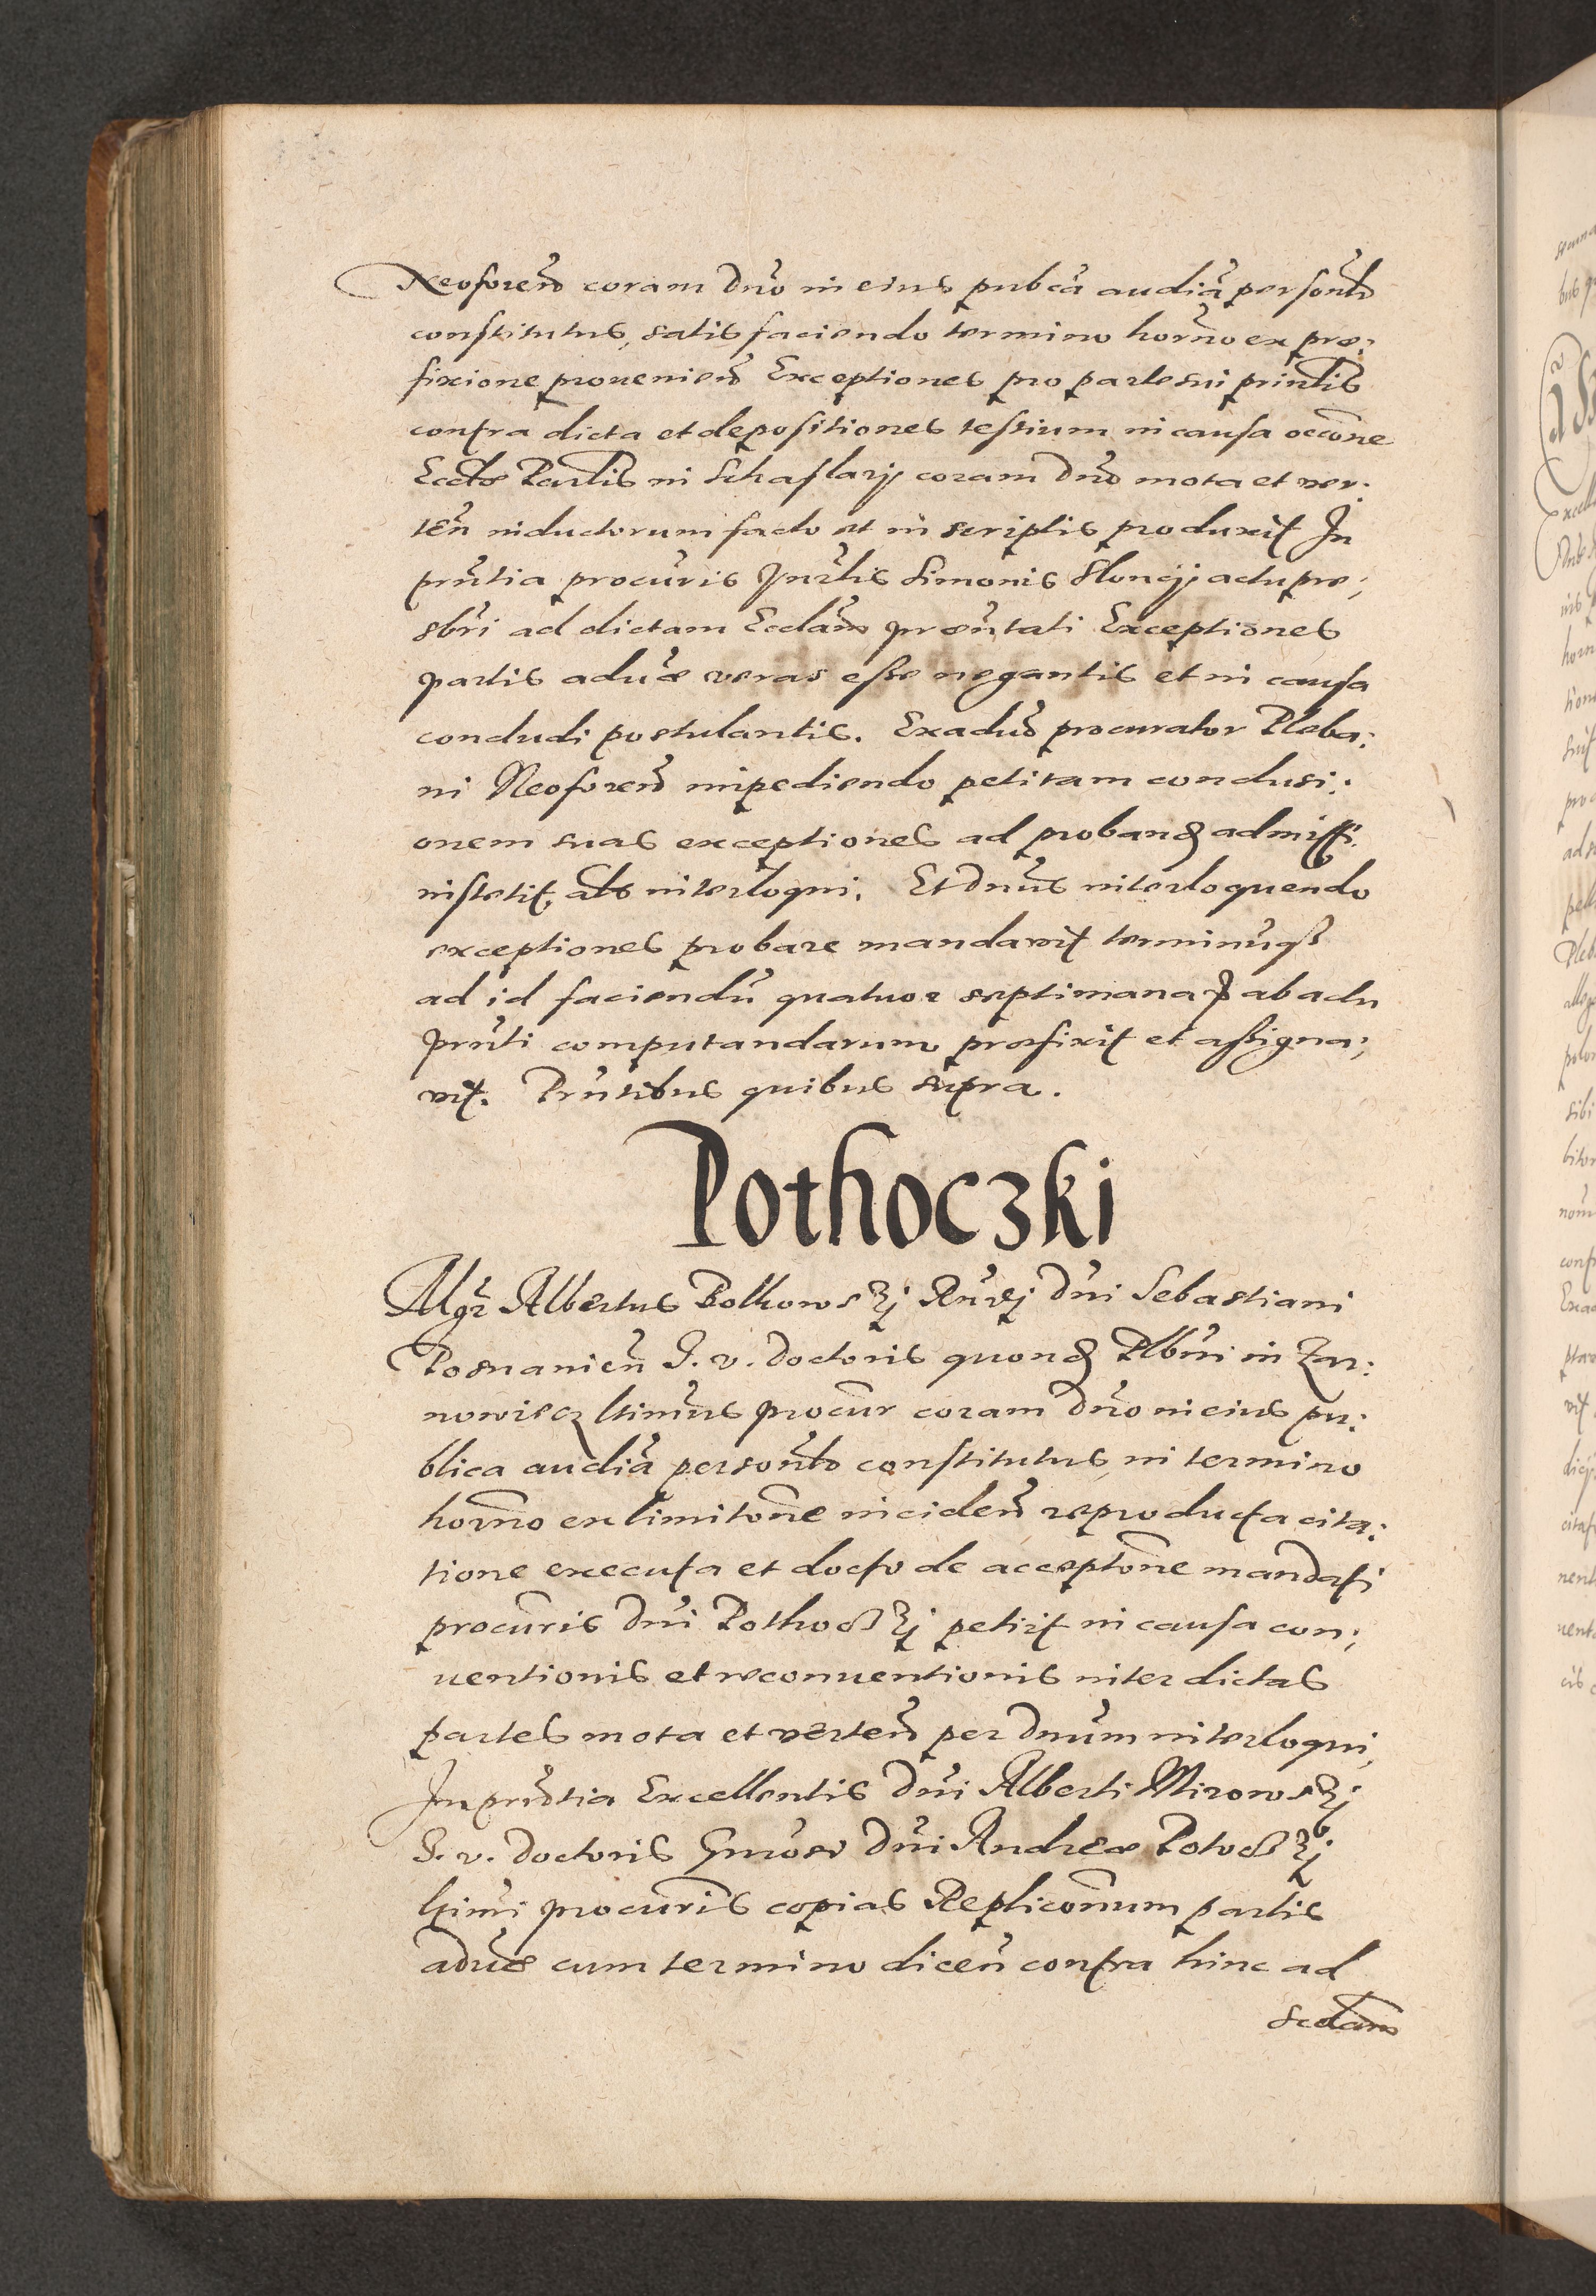 Neoforeñ coram Dno in eius pubca audia personlr
constitutus, satisfaciendo termino horno ex prae:
fixione prouenieñ Exceptiones pro parte sui prinlis
contra dicta et depositiones testium in causa occone
Eccłae Parlis in Schaflarij coram Dno mota et ver:
teñ inductorum facto et in scriptis produxit In
prntia procuris Simonis Sloncij actu prae:
sbri ad dictam Eccłam praesentati Exceptiones
partis aduae veras esse negantis et in causa
concludi postulantis. Exaduo procurator Pleba:
ni Neoforeñ impediendo petitam conclusi:
onem suas exceptiones ad proband admitti
institit, als interloqui. Et Dnus interloquendo
exceptiones probare mandavit terminuqȝ
ad id faciendu quatuor septimanaꝝ ab actu
prnti computandarum praefixit et assigna:
vit. Prntibus quibus supra.
Pothoczki
Mgr Albertus Bolkowskj Rndj Dni Sebastiani
Posnanieñ J. v. doctoris quond Plbni in Zar:
nowiecz ltimus procur coram Dno in eius pu:
blica audia personlr constitutus, in termino
horno ex limitone incideñ reproducta cita:
tione executa et docto de acceptone mandati
procuris Dni Pothoczkj petiit in causa con:
uentionis et reconuentionis inter dictas
partes mota et verteñ per Dnum interloqui,
In prntia Excellentis Dni Alberti Mirowskj
J. v. doctoris Gnosi Dni Andreae Potoczkj
ltimi procuris copias Repliconum partis
aduae cum termino diceñ contra hinc ad
scdam